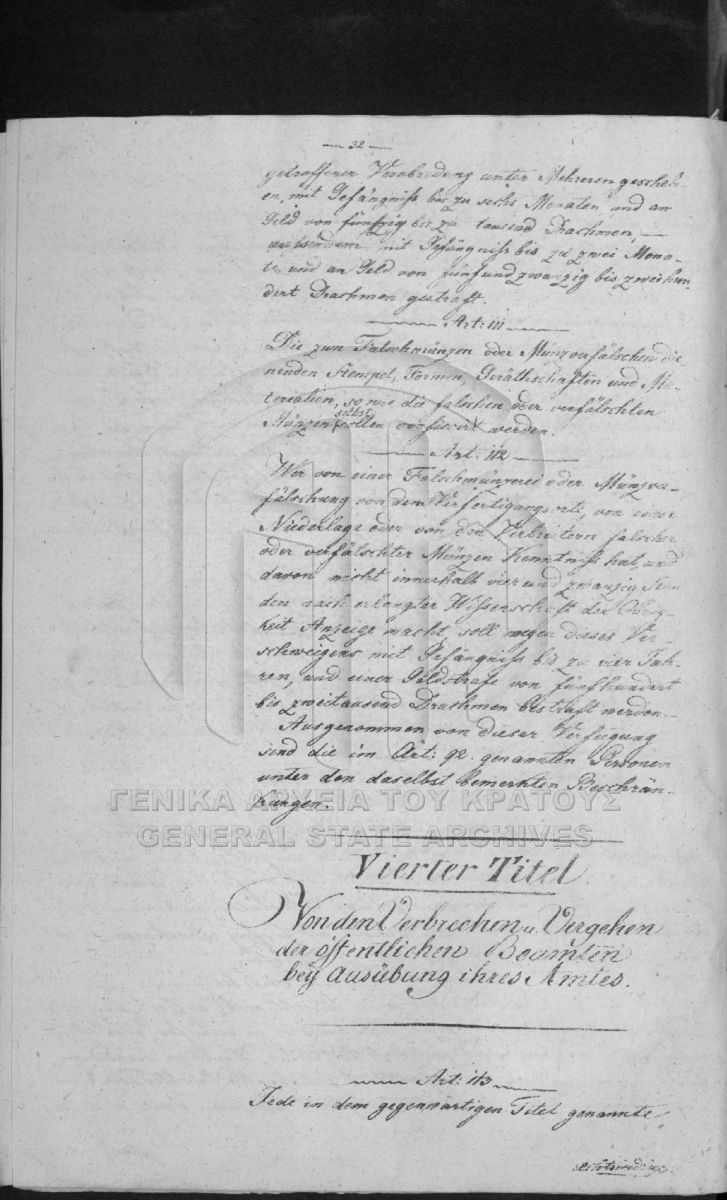 32
getroffener Verabredung unter Mehreren gescheh-
en, mit Gefängniss bis zu sechs Monaten und an
Geld von fünfzig bis zu tausend Drachmen, —
ausserdem mit Gefängniss bis zu zwei Mona-
te und an Geld von fünfundzwanzig bis zweihun-
dert Drachmen gestraft.
Art: 111
Die zum Falschmünzen oder Münzverfälschen die
nenden Stempel, Formen, Geräthschaften und Ma-
terialien, so wie die falschen oder verfälschten
Münzen selbst sollen confiscirt werden.
Art: 112
Wer von einer Falschmünzerei oder Münzver-
fälschung von dem Verfertigungsorte, von einer
Niederlage oder von den Verbreitern falscher
oder verfälschter Münzen Kenntniss hat, und
davon nicht innerhalb vier und zwanzig Stun
den nach erlangter Wissenschaft der Obrig-
keit Anzeige macht, soll wegen dieses Ver-
schweigens mit Gefängniss bis zu vier Jah-
ren, und einer Geldstrafe von fünfhundert
bis zweitausend Drachmen bestraft werden.
Ausgenommen von dieser Verfügung
sind die im Art: 92. genannten Personen
unter den daselbst bemerkten Beschrän-
kungen.
ΓΕΝΙΚΑ ΑΡΧΕΙΑ ΤΟΥ ΚΡΑΤΟΥΣ
GENERAL STATE ARCHIVES
Vierter Titel
Von den Verbrechen u. Vergehen
der öffentlichen Beamten
bey Ausübung ihres Amtes.
Art: 113
Jede in dem gegenwärtigen Titel genannte